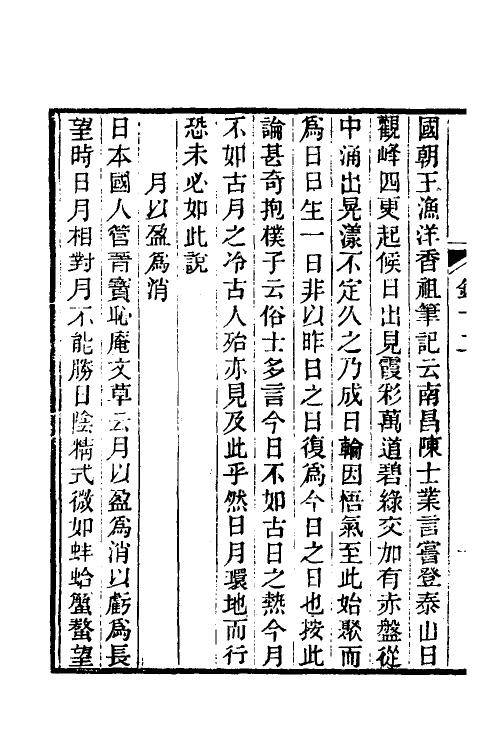 國朝王漁洋香祖筆記云南昌陳士業言嘗登泰山日
觀峰四更起候日出見霞彩萬道碧綠交加有赤盤從
中涌出晃漾不定久之乃成日輪因悟氣至此始聚而
爲日日生一日非以昨日之日復爲今日之日也按此
論甚奇抱樸子云俗士多言今日不如古日之熱今月
不如古月之冷古人殆亦見及此乎然日月環地而行
恐未必如此說
月以盈爲消
日本國人管晉寶恥庵文草云月以盈爲消以虧爲長
望時日月相對月不能勝日陰精式微如蚌蛤蟹螯望